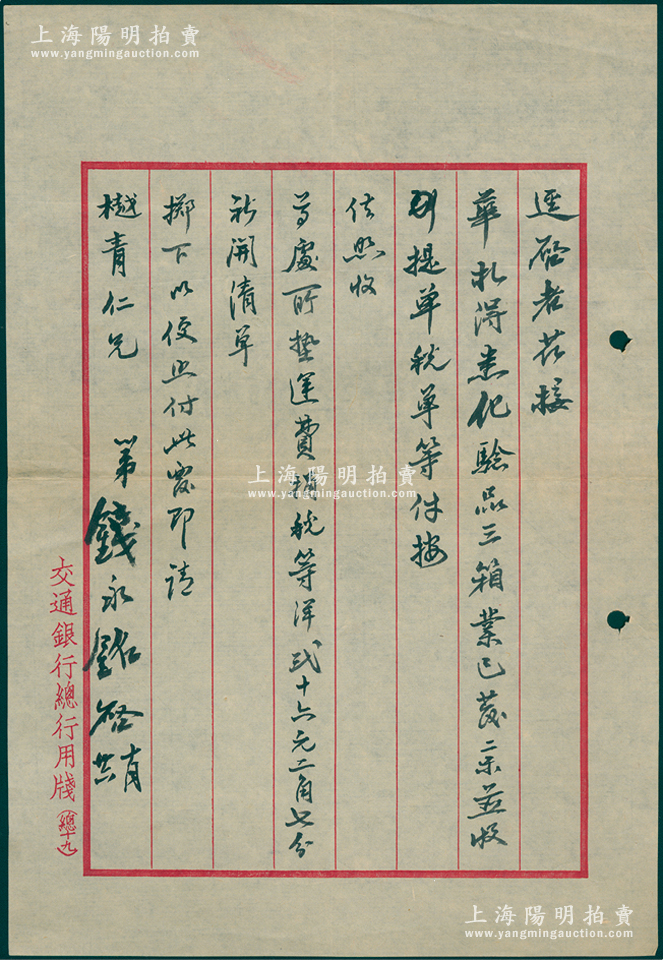 上海陽明拍賣
www.yangmingauction.com
逕啓者茲接
華札得悉化驗品三箱業已發示並收
到提單稅單等件按
信照收
尊處所墊運費捐稅等洋貳十六元二角七分
祈開清單
擲下以便照付此覆即請
樾青仁兄
弟錢永銘啓
交通銀行總行用牋(總十九)
上海陽明拍賣
www.yangmingauction.com
上海陽明拍賣
www.yangmingauction.com